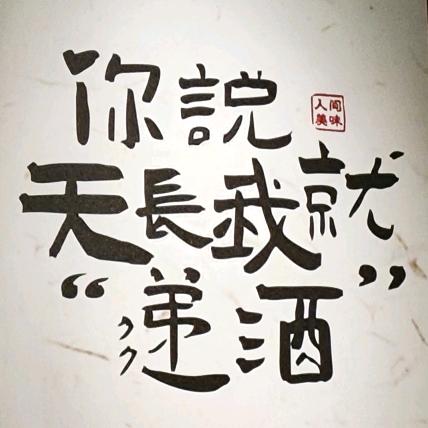 你説
人间
美味
天長我就
“递酒”